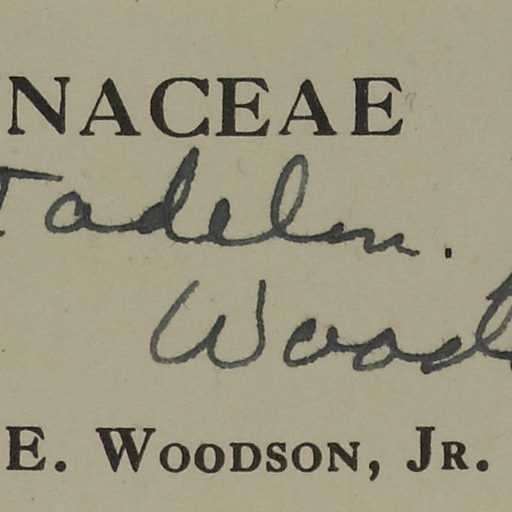 NACEAE
Tadelm.
Wood
E. WOODSON, JR.